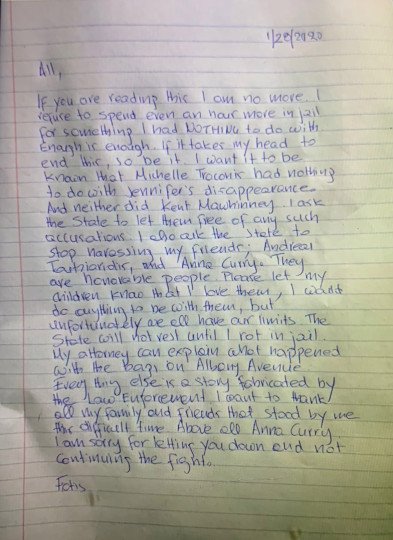 1/28/2020
All,
If you are reading this I am no more. I
refuse to spend even an hour more in jail
for something I had NOTHING to do with
Enough is enough. If it takes my head to
end this, so be it. I want it to be
known that Michelle Troconis had nothing
to do with Jennifer's disappearance.
And neither did Kent Mawhinney. I ask
the State to let them free of any such
accusations. I also ask the State to
stop harassing my friends; Andreas
Toutziaridis, and Anna Curry. They
are honorable people. Please let my
children know that I love them, I would
do anything to be with them, but
unfortunately we all have our limits. The
State will not rest until I rot in jail.
My attorney can explain what happened
with the bags on Albany Avenue.
Everything else is a story fabricated by
the Law Enforcement I want to thank
all my family and friends that stood by me
this difficult time. Above all Anna Curry
I am sorry for letting you down and not
continuing the fight.
Fotis